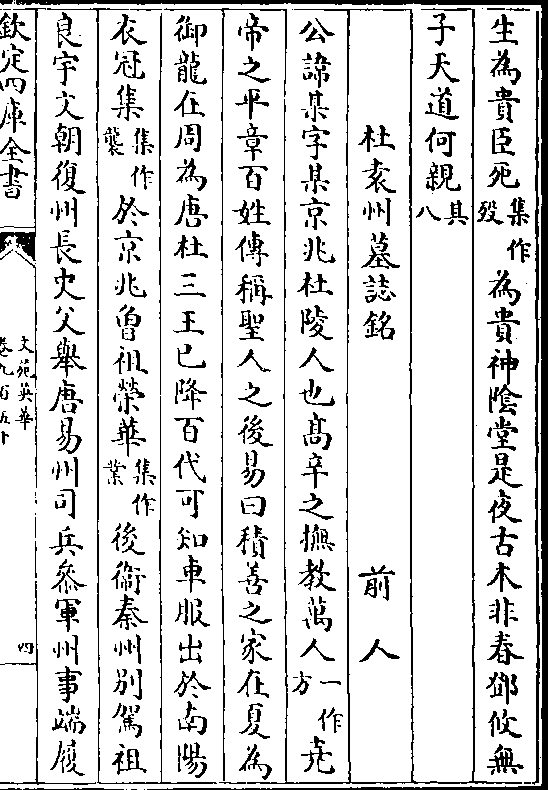 生為貴臣死集作歿為貴神陰堂是夜古木非春鄧攸無
子天道何親其八
杜袁州墓誌銘 前人
公諱某字某京兆杜陵人也髙辛之撫教萬人一作方堯
帝之平章百姓傳稱聖人之後易曰積善之家在夏為
御龍在周為唐杜三王已降百代可知車服出於南陽
衣冠集集作襲於京兆曾祖榮華集作業後衛秦州別駕祖
良宇文朝復州長史父舉唐易州司兵叅軍州事端履
欽定四庫全書
文苑英華
卷九百五十
四